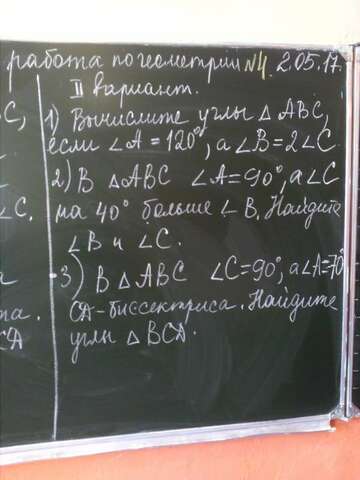 работа по геометрии №4. 2.05.17.
II вариант.
С,
1) Вычислите углы △ ABC,
если ∠A = 120°, а ∠B = 2∠C
2) В △ABC ∠A = 90°, а ∠C
∠C. на 40° больше ∠B. Найдите
∠B и ∠C.
3) В △ABC ∠C = 90°, а ∠A = 70°
та. CД - биссектриса. Найдите
CД углы △ BCД.